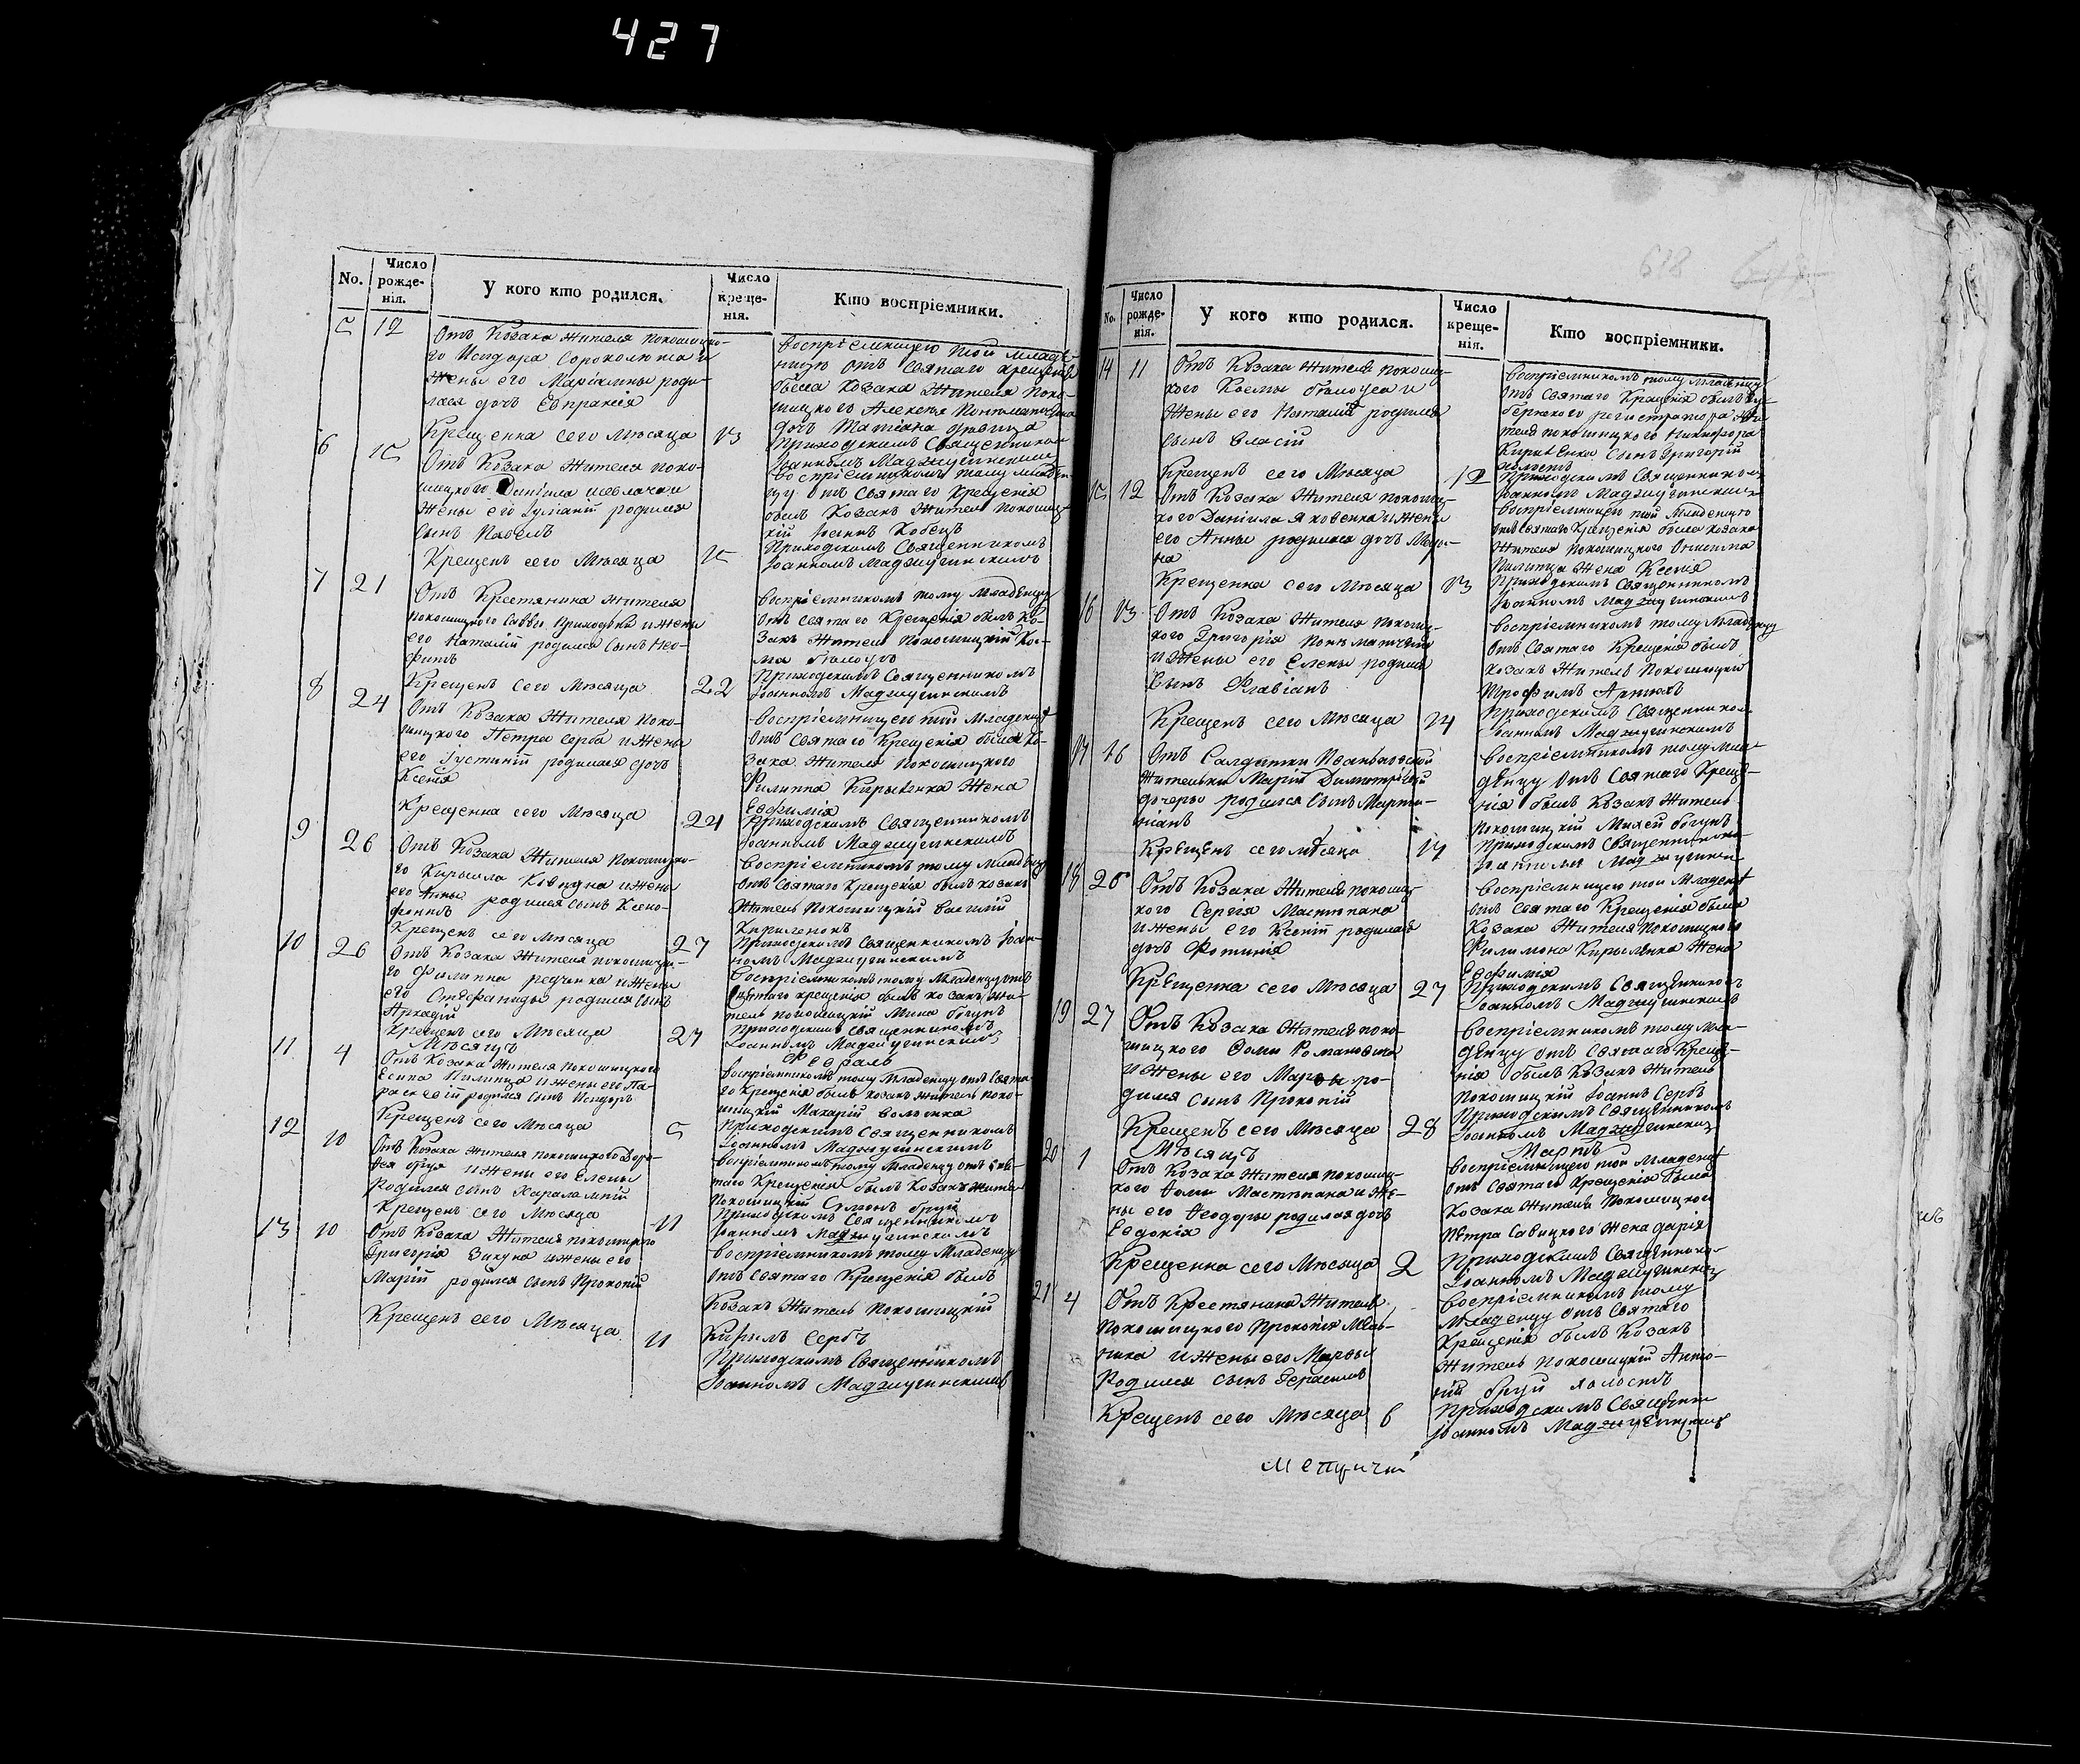 427
No.
Число рожде-нія.
У кого кто родился.
Число креще-нія.
Кто воспріемники.
5 12
Отъ Козака жителя покошицко-
го Исидора Сороколета и
жены его Маріамны роди-
лася дочь Евпраксія
Крещенна сего Мѣсяца 13
воспріемницею той младе-
ницы отъ Святаго крещенія
была козака жителя поко-
шицкого Алексѣя
дочь Татіана дѣвица
Приходскимъ Священникомъ
Іоанномъ Маджугинскимъ
6 15
Отъ Козака жителя поко-
шицкого Даніила Шевлачка и
жены его Іуліаніи родился
сынъ Павелъ
Крещенъ сего Мѣсяца 15
воспріемникомъ тому младен-
цу отъ Святаго Крещенія
былъ Козакъ житель покошиц-
кій Іоаннъ Кобецъ
Приходскимъ Священникомъ
Іоанномъ Маджугинскимъ
7 21
Отъ Крестянина жителя
покошицкого Саввы Приходька и жены
его Наталіи родился сынъ Нео-
фитъ
Крещенъ сего Мѣсяца 22
воспріемникомъ тому младенцу
отъ святаго Крещенія былъ Ко-
закъ житель покошицкій Кос-
ма бѣлоусъ
Приходскимъ Священникомъ
Іоанномъ Маджугинскимъ
8 24
Отъ Козака жителя поко-
шицкого Петра серба и жены
его Іустиніи родилася дочь
Ксенія
Крещенна сего Мѣсяца 24
воспріемницею той младеницы
отъ Святаго Крещенія была ко-
зака жителя покошицкого
Филиппа Кирыенка жена
Евфимія
Приходскимъ Священникомъ
Іоанномъ Маджугинскимъ
9 26
Отъ Козака жителя покошицко-
го Кирыла Ковтуна и жены
его Анны родился сынъ Ксено-
фонтъ
Крещенъ сего Мѣсяца 27
воспріемникомъ тому младенцу
отъ Святаго Крещенія былъ козакъ
житель покошицкій Василій
Кириленокъ
Приходскимъ Священникомъ Іоан-
номъ Маджугинскимъ
10 26
Отъ Козака жителя покошицко-
го Филиппа редчика и жены
его Стефаниды родился сынъ
Аркадій
Крещенъ сего Мѣсяца 27
воспріемникомъ тому младенцу отъ
святаго крещенія былъ козакъ жи-
тель покошицкій Мина богунъ
Приходскимъ священникомъ
Іоанномъ Маджугинскимъ
Мѣсяцъ Февраль
11 4
Отъ Козака жителя покошицкого
Есипа Пилипца и жены его Па-
раскевіи родился сынъ Исидоръ
Крещенъ сего Мѣсяца 5
воспріемникомъ тому младенцу отъ свята-
го крещенія былъ козакъ житель поко-
шицкій Макарій воленка
Приходскимъ священникомъ
Іоанномъ Маджугинскимъ
12 10
Отъ Козака жителя покошицкого Доро-
фея бруя и жены его Елены
родился сынъ Харалампій
Крещенъ сего Мѣсяца 11
воспріемникомъ тому младенцу отъ свя-
таго Крещенія былъ Козакъ житель
покошицкій Сумонъ бруй
Приходскимъ Священникомъ
Іоанномъ Маджугинскимъ
13 10
Отъ Козака жителя покошицкого
Григорія Зикуна и жены его
Маріи родился сынъ Прокопій
Крещенъ сего Мѣсяца 11
воспріемникомъ тому младенцу
отъ святаго Крещенія былъ
Козакъ житель покошицкій
Кирилъ сербъ
Приходскимъ Священникомъ
Іоанномъ Маджугинскимъ
618
No.
Число рожде-нія.
У кого кто родился.
Число креще-нія.
Кто воспріемники.
14 11
Отъ Козака жителя покошиц-
кого Космы бѣлоуса и
жены его Наталіи родился
сынъ Власій
Крещенъ сего Мѣсяца 12
воспріемникомъ тому младенцу
отъ святаго Крещенія былъ гу-
бернского регистратора жи-
теля покошицкого Никифора
Кирыенка сынъ Григорій
холостъ
Приходскимъ Священникомъ
Іоанномъ Маджугинскимъ
15 12
Отъ Козака жителя покошиц-
кого Даніила Яковенка и жены
его Анны родилася дочь Мари-
на
Крещенна сего Мѣсяца 13
воспріемницею той младеницы
отъ святаго Крещенія была козака
жителя покошицкого Никиты
Пилипца жена Ксенія
Приходскимъ Священникомъ
Іоанномъ Маджугинскимъ
16 13
Отъ Козака жителя покошиц-
кого Григорія
и жены его Елены родился
сынъ Флавіанъ
Крещенъ сего Мѣсяца 14
воспріемникомъ тому младенцу
отъ Святаго Крещенія былъ
козакъ житель покошицкій
Трофимъ Артюхъ
Приходскимъ Священником
Іоанномъ Маджугинскимъ
17 16
Отъ Салдатки Иванковской
жительки Маріи Димитріевой
дочерью родился сынъ Марти-
ніанъ
Крещенъ сего мѣсяца 17
воспріемникомъ тому мла-
денцу отъ Святаго Креще-
нія былъ Козакъ житель
покошицкій Михей богунъ
Приходскимъ Священникомъ
Іоанномъ Маджугинскимъ
18 26
Отъ Козака жителя покошиц-
кого Сергія Мастѣпана
и жены его Ксеніи родилася
дочь Фотинія
Крещенна сего Мѣсяца 27
воспріемницею той младеницы
отъ святаго Крещенія была
Козака жителя покошицкого
Филимона Кирыенка жена
Евфимія
Приходскимъ Священникомъ
Іоанномъ Маджугинскимъ
19 27
Отъ Козака жителя поко-
шицкого Фомы Романовича
и жены его Марфы ро-
дился сынъ Прокопій
Крещенъ сего Мѣсяца 28
воспріемникомъ тому мла-
денцу отъ святаго Креще-
нія былъ Козакъ житель
покошицкій Іоаннъ Сербъ
Приходскимъ Священникомъ
Іоанномъ Маджугинскимъ
Мѣсяцъ Мартъ
20 1
Отъ Козака жителя покошиц-
кого Фомы Мастѣпана и же-
ны его Феодоры родилася дочь
Евдокія
Крещенна сего Мѣсяца 2
воспріемницею той младеницы
отъ святаго Крещенія была
козака жителя покошицкого
Петра Савицкого жена Дарія
Приходскимъ Священнико-
Іоанномъ Маджугинским
21 4
Отъ Крестянина жителя
покошицкого Прокопія Мель-
ника и жены его Марфы
родился сынъ Герасимъ
Крещенъ сего Мѣсяца 6
воспріемникомъ тому
младенцу отъ Святаго
Крещенія былъ Козакъ
житель покошицкій Анто-
ній бруй холостъ
Приходскимъ Священни
Іоанномъ Маджугинскимъ